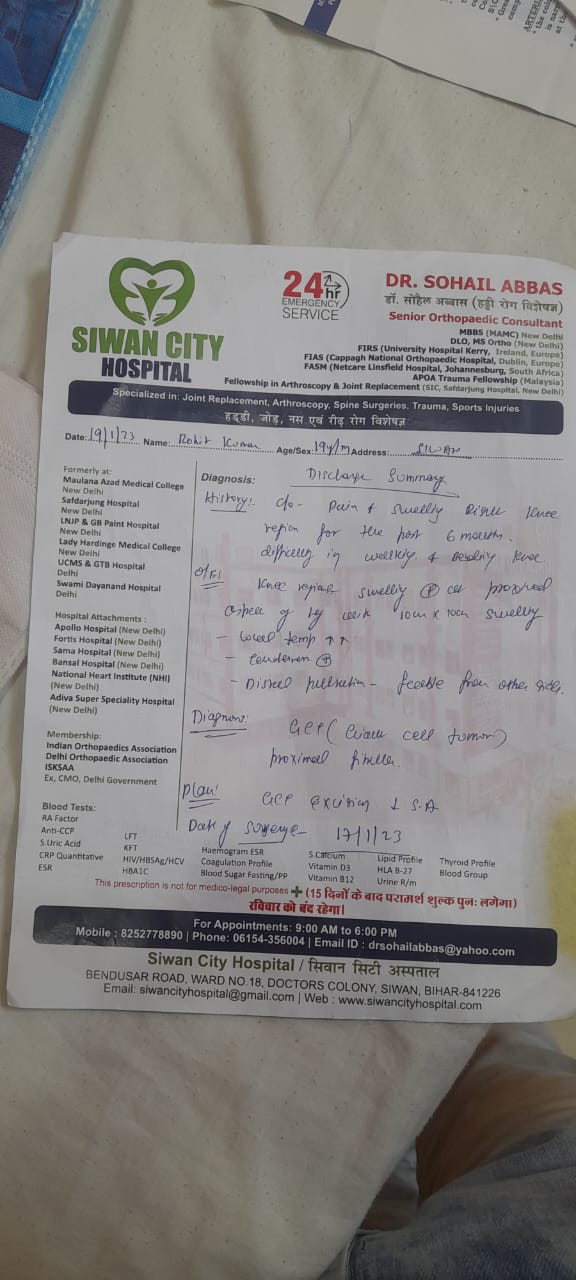 SIWAN CITY
HOSPITAL
24 hr
EMERGENCY
SERVICE
DR. SOHAIL ABBAS
डॉ. सोहैल अब्बास (हड्डी रोग विशेषज्ञ)
Senior Orthopaedic Consultant
MBBS (MAMC) New Delhi
DLO, MS Ortho (New Delhi)
FIRS (University Hospital Kerry, Ireland, Europe)
FIAS (Cappagh National Orthopaedic Hospital, Dublin, Europe)
FASM (Netcare Linsfield Hospital, Johannesburg, South Africa)
APOA Trauma Fellowship (Malaysia)
Fellowship in Arthroscopy & Joint Replacement (SIC, Safdarjung Hospital, New Delhi)
Specialized in: Joint Replacement, Arthroscopy, Spine Surgeries, Trauma, Sports Injuries
हड्डी, जोड़, नस एवं रीढ़ रोग विशेषज्ञ
Date: 19/1/23 Name: Rohit Kumar Age/Sex: 19y/m Address: SIWAN
Formerly at:
Maulana Azad Medical College
New Delhi
Safdarjung Hospital
New Delhi
LNJP & GB Paint Hospital
New Delhi
Lady Hardinge Medical College
New Delhi
UCMS & GTB Hospital
Delhi
Swami Dayanand Hospital
Delhi
Hospital Attachments :
Apollo Hospital (New Delhi)
Fortis Hospital (New Delhi)
Sama Hospital (New Delhi)
Bansal Hospital (New Delhi)
National Heart Institute (NHI)
(New Delhi)
Adiva Super Speciality Hospital
(New Delhi)
Membership:
Indian Orthopaedics Association
Delhi Orthopaedic Association
ISKSAA
Ex, CMO, Delhi Government
Diagnosis: Discharge Summary
History: c/o- Pain & Swelling Right Knee
region for the past 6 months.
difficulty in & knee
O/E! Knee region swelling proximal
aspect of leg with 10cm x 10cm swelling
- Local temp ↑↑
-
- Distal pulsation - feeble from other side.
GCT ( cell tumor)
proximal
Plan! GCT
Date of surgery- 17/1/23
Blood Tests:
RA Factor
Anti-CCP
S.Uric Acid
CRP Quantitative
ESR
LFT
KFT
HIV/HBSAg/HCV
HBA1C
Haemogram ESR
Coagulation Profile
Blood Sugar Fasting/PP
S.Calcium
Vitamin D3
Vitamin B12
Lipid Profile
HLA B-27
Urine R/m
Thyroid Profile
Blood Group
This prescription is not for medico-legal purposes (15 दिनों के बाद परामर्श शुल्क पुनः लगेगा)
रविवार को बंद रहेगा।
For Appointments: 9:00 AM to 6:00 PM
Mobile : 8252778890 | Phone: 06154-356004 | Email ID : drsohailabbas@yahoo.com
Siwan City Hospital / सिवान सिटी अस्पताल
BENDUSAR ROAD, WARD NO.18, DOCTORS COLONY, SIWAN, BIHAR-841226
Email: siwancityhospital@gmail.com | Web : www.siwancityhospital.com